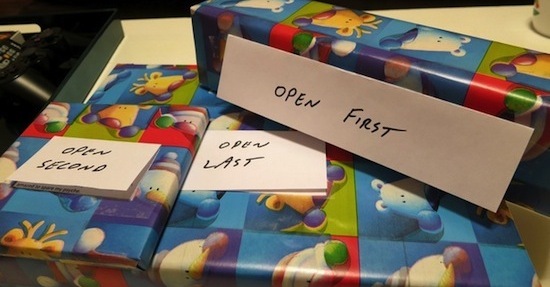 OPEN FIRST
OPEN
SECOND
OPEN
LAST